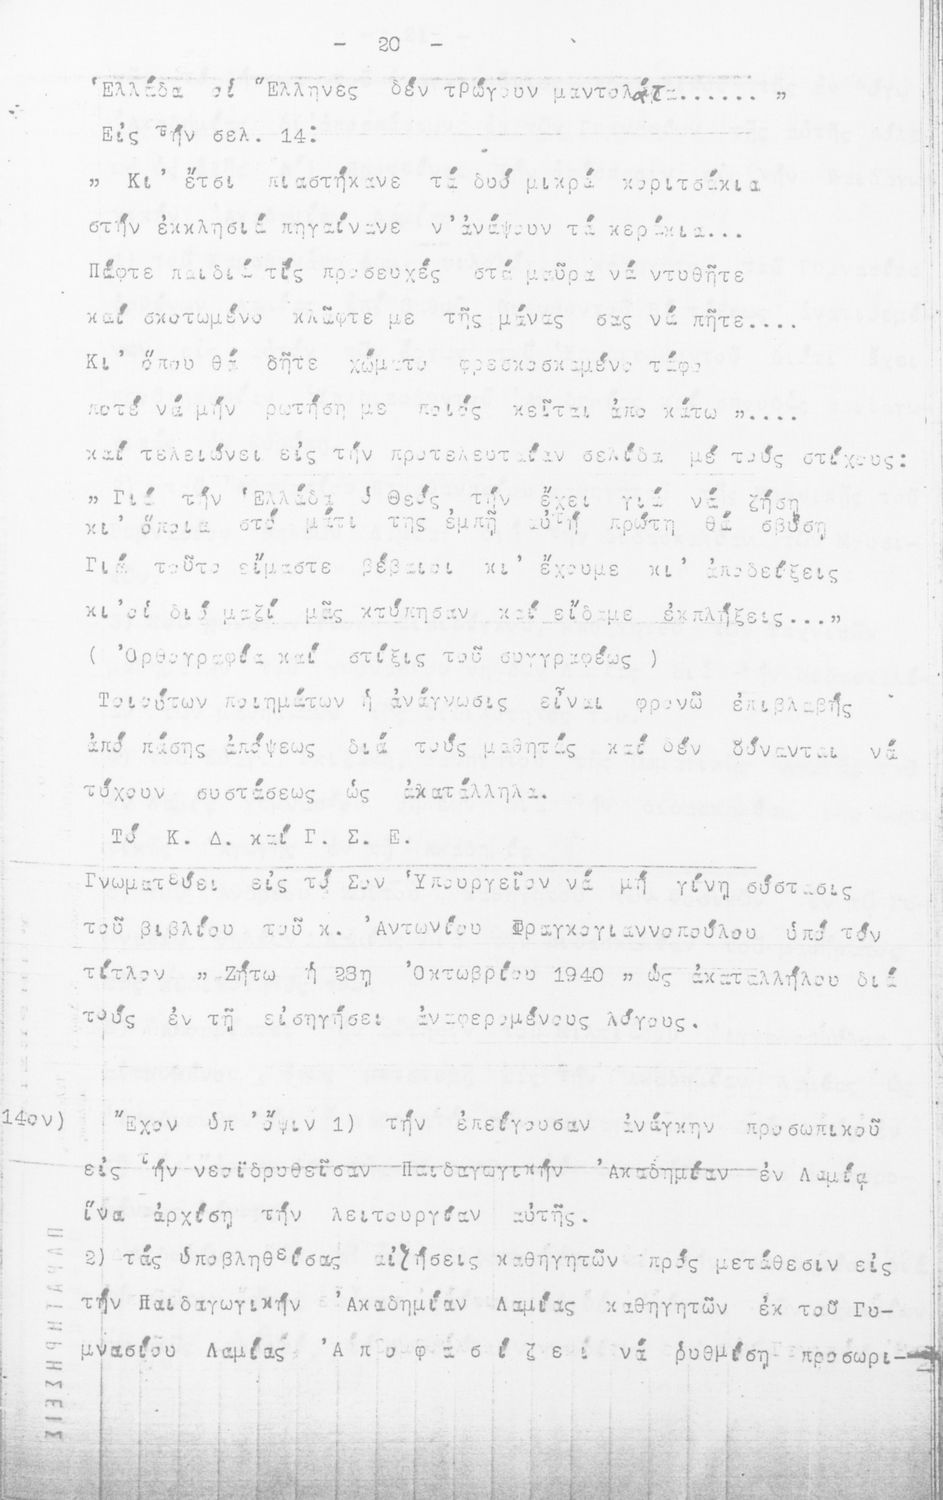 - 20 -
Ἑλλάδα οἱ Ἕλληνες δέν τρώγουν μαντολάτα....... "
Εἰς τήν σελ. 14:
" Κι' ἔτσι πιαστήκανε τά δυό μικρά κοριτσάκια
στήν ἐκκλησιά πηγαίνανε ν'ἀνάψουν τά κεράκια...
Πάφτε παιδιά τίς προσευχές στά μαῦρα νά ντυθῆτε
καί σκοτωμένο κλᾶφτε με τῆς μάνας σας νά πῆτε....
Κι' ὅπου θά δῆτε χώματο φρεσκοσκαμένο τάφο
ποτέ νά μήν ρωτήση με ποιός κεῖται ἀπο κάτω "....
καί τελειώνει εἰς τήν προτελευταίαν σελίδα μέ τούς στίχους:
" Γιά τήν Ἑλλάδα ὁ Θεός τήν ἔχει γιά νά ζήση
κι' ὅποια στό μάτι της ἐμπῆ αὐτή πρώτη θά σβύση
Γιά τοῦτο εἴμαστε βέβαιοι κι' ἔχουμε κι' ἀποδείξεις
κι'οἱ διό μαζί μᾶς κτύπησαν καί εἴδαμε ἐκπλήξεις..."
( Ὀρθογραφία καί στίξις τοῦ συγγραφέως )
Τοιούτων ποιημάτων ἡ ἀνάγνωσις εἶναι φρονῶ ἐπιβλαβής
ἀπό πάσης ἀπόψεως διά τούς μαθητάς καί δέν δύνανται νά
τύχουν συστάσεως ὡς ἀκατάλληλα.
Τό Κ. Δ. καί Γ. Σ. Ε.
Γνωματεύει εἰς τό Σον Ὑπουργεῖον νά μή γίνη σύστασις
τοῦ βιβλίου τοῦ κ. Ἀντωνίου Φραγκογιαννοπούλου ὑπό τόν
τίτλον " Ζήτω ἡ 28η Ὀκτωβρίου 1940 " ὡς ἀκαταλλήλου διά
τούς ἐν τῇ εἰσηγήσει ἀναφερομένους λόγους.
14ον) Ἔχον ὑπ' ὄψιν 1) τήν ἐπείγουσαν ἀνάγκην προσωπικοῦ
εἰς τήν νεοϊδρυθεῖσαν Παιδαγωγικήν Ἀκαδημίαν ἐν Λαμίᾳ
ἵνα ἀρχίση τήν λειτουργίαν αὐτῆς.
2) τάς ὑποβληθείσας αἰτήσεις καθηγητῶν πρός μετάθεσιν εἰς
τήν Παιδαγωγικήν Ἀκαδημίαν Λαμίας καθηγητῶν ἐκ τοῦ Γυ-
μνασίου Λαμίας Ἀ π ο φ α σ ί ζ ε ι νά ρυθμίση προσωρι-
ΠΑΡΑΤΗΡΗΣΕΙΣ